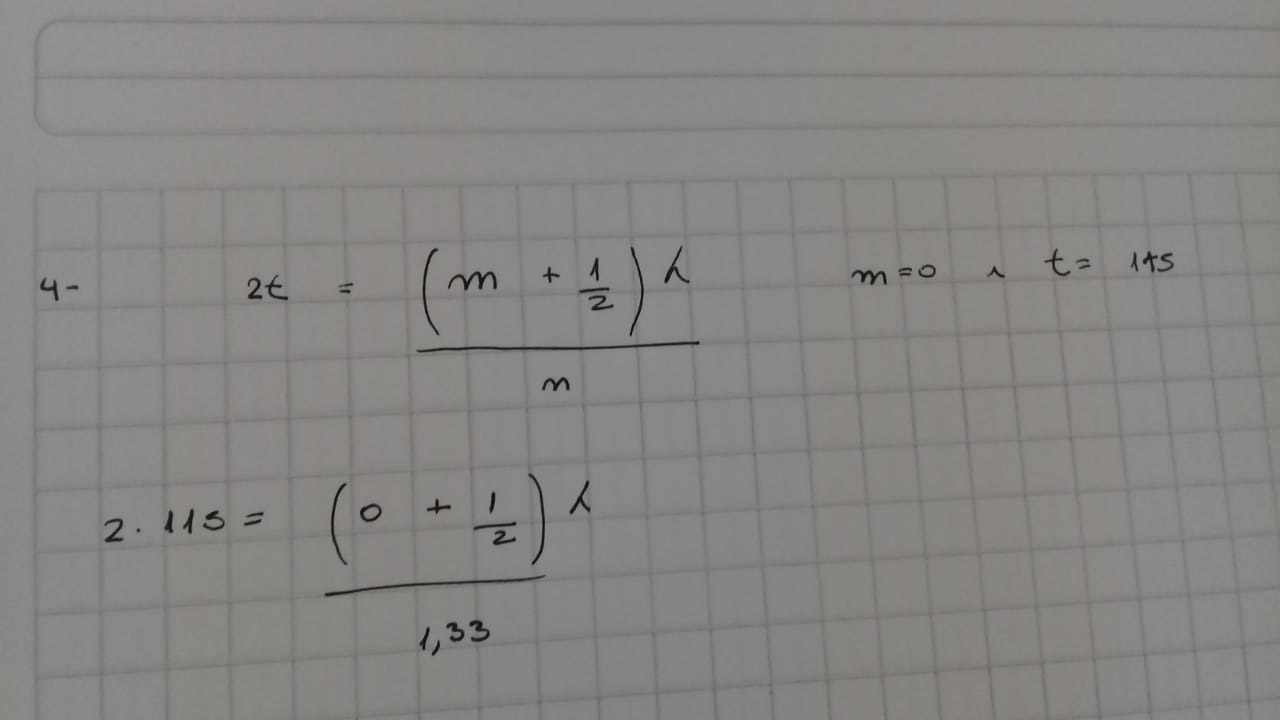 4- 2t = (m + 1/2) λ / n m=0 ^ t= 115
2. 115 = (0 + 1/2) λ / 1,33